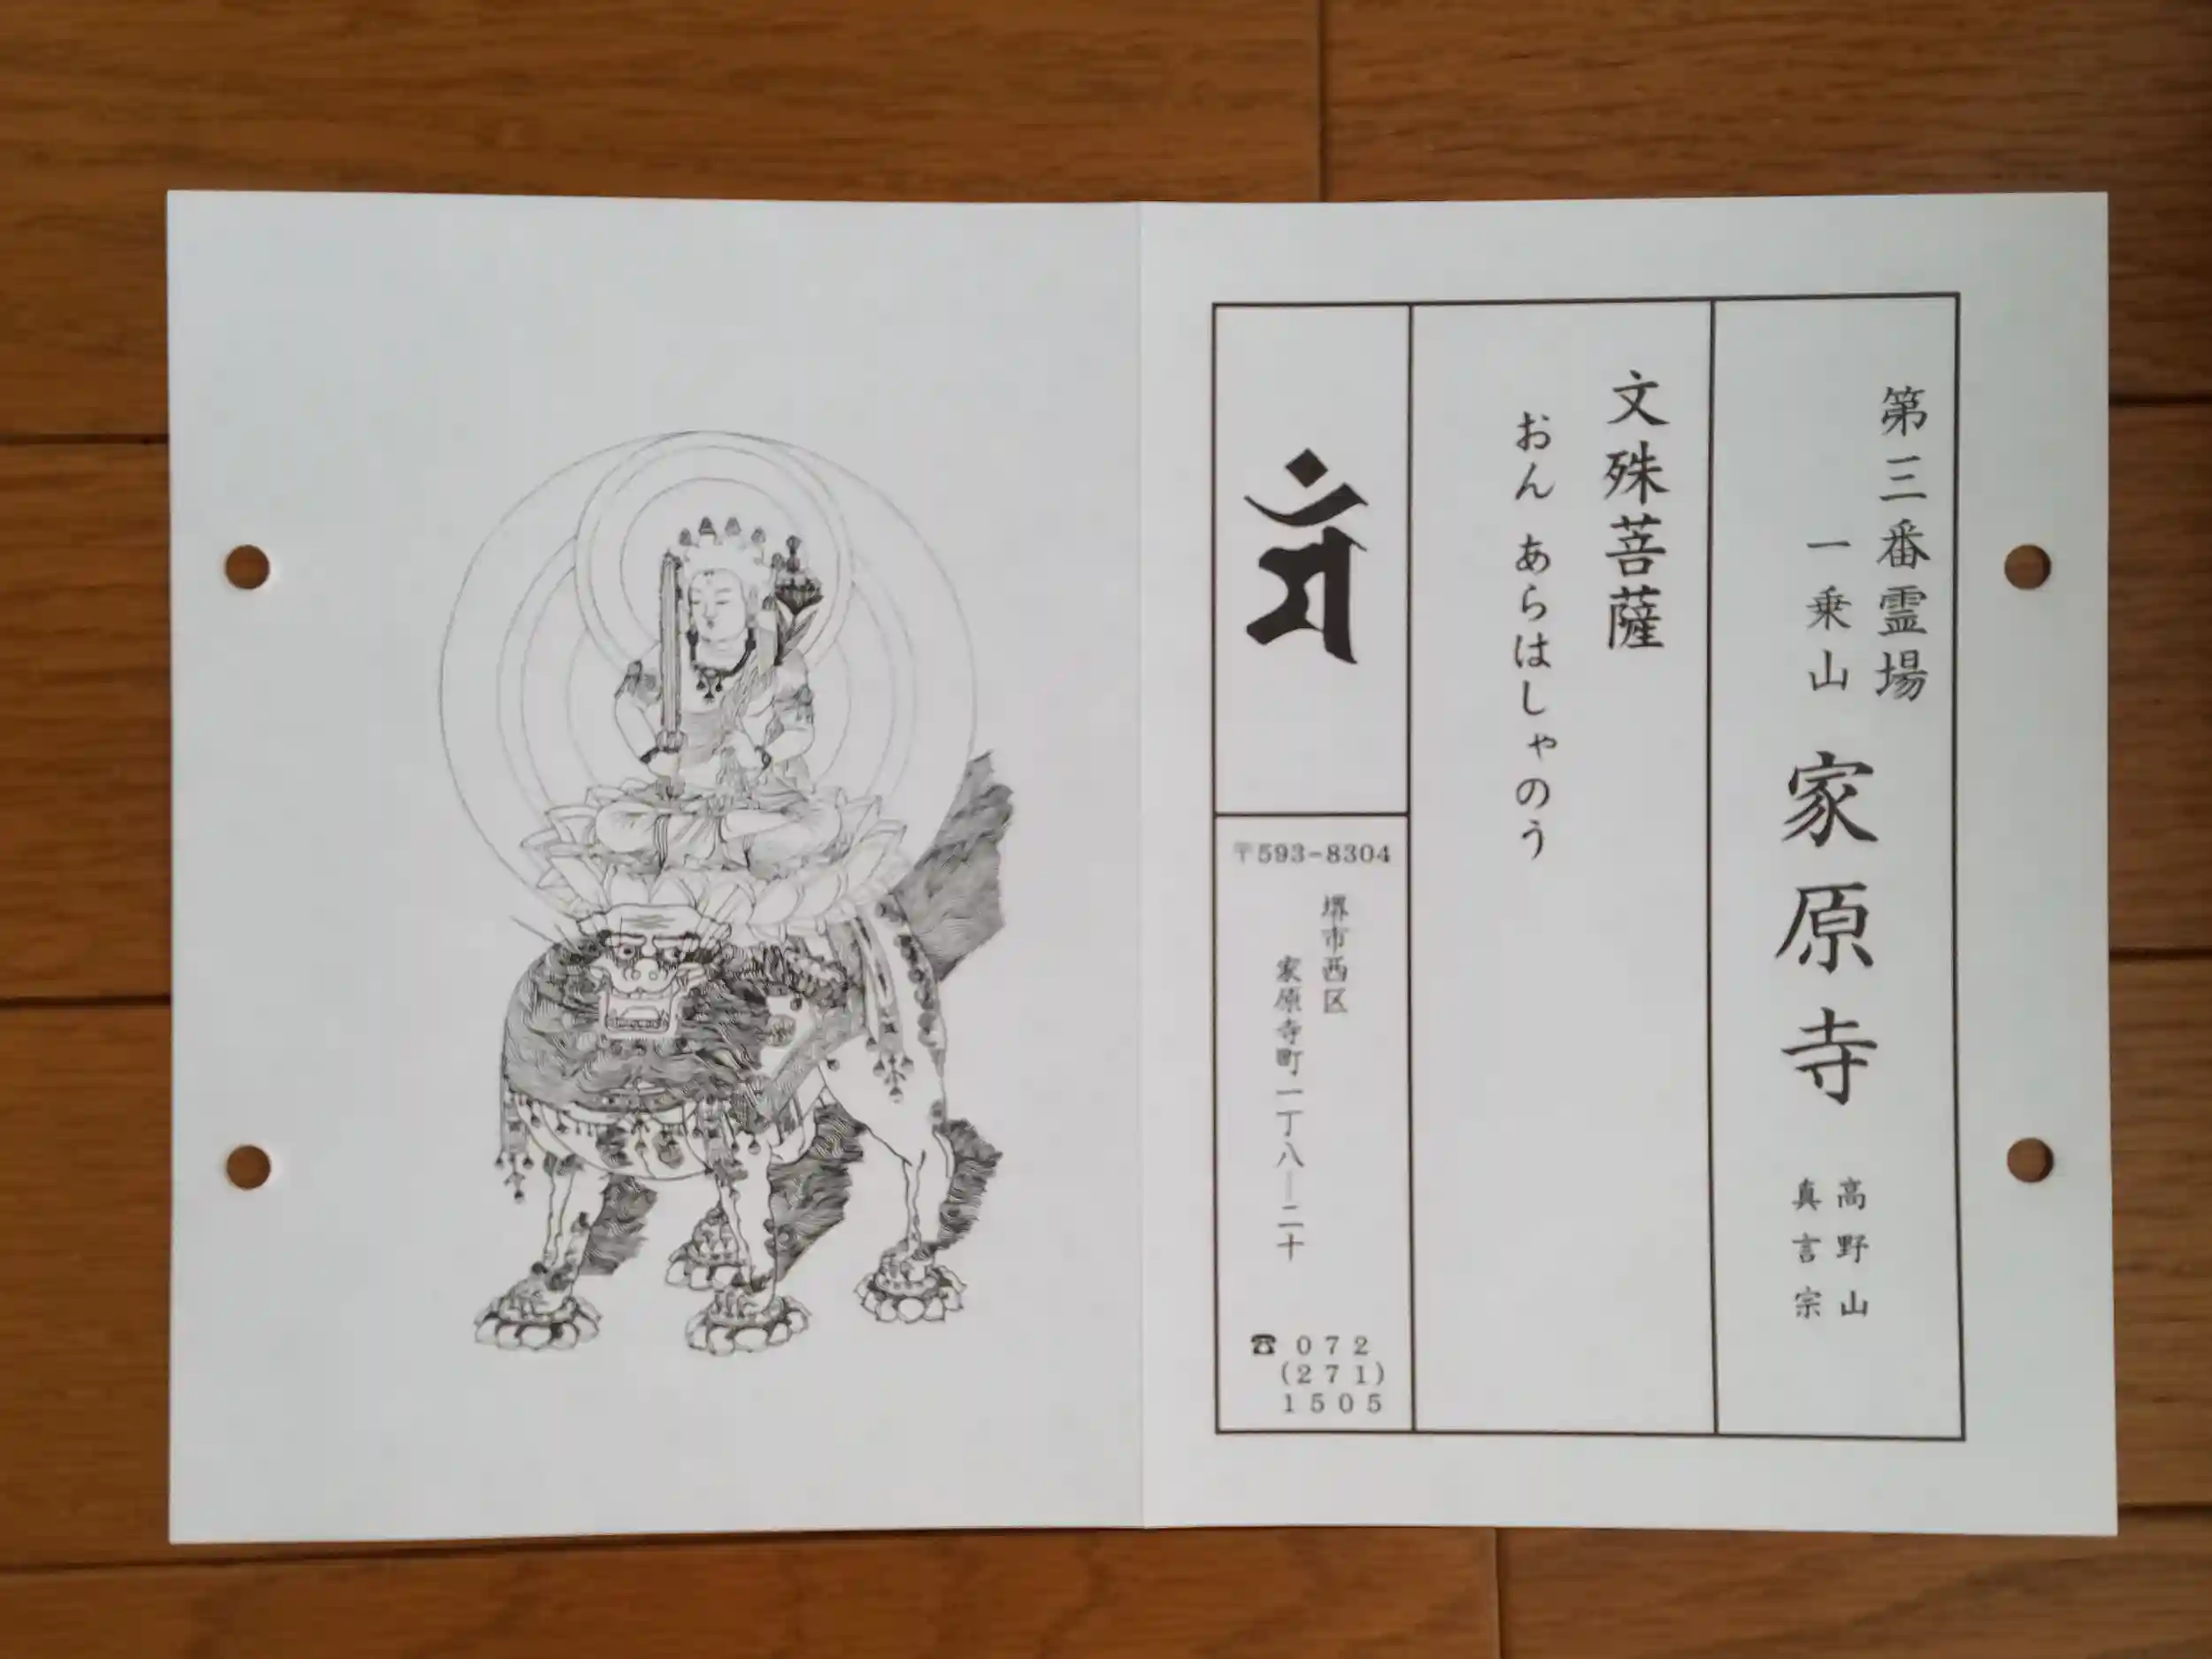 第三番霊場
一乗山 家原寺 高野山
真言宗
文殊菩薩
おん あらはしゃのう
𑖦𑖽
〒593-8304
堺市西区
家原寺町一丁八―二十
☎072
(271)
1505